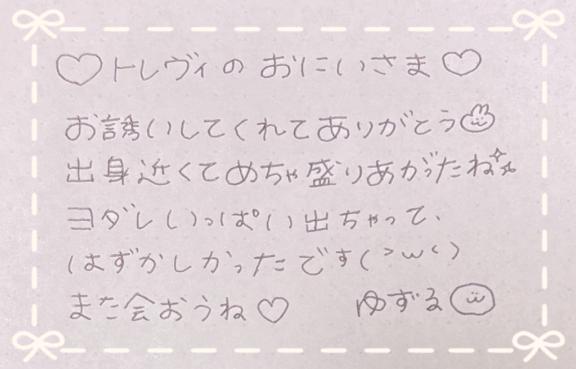 ♡トレヴィの おにいさま♡
お誘いしてくれてありがとう
出身近くてめちゃ盛りあがったね
ヨダレいっぱい出ちゃって、
はずかしかったです(>ω<)
また会おうね♡ ゆずる